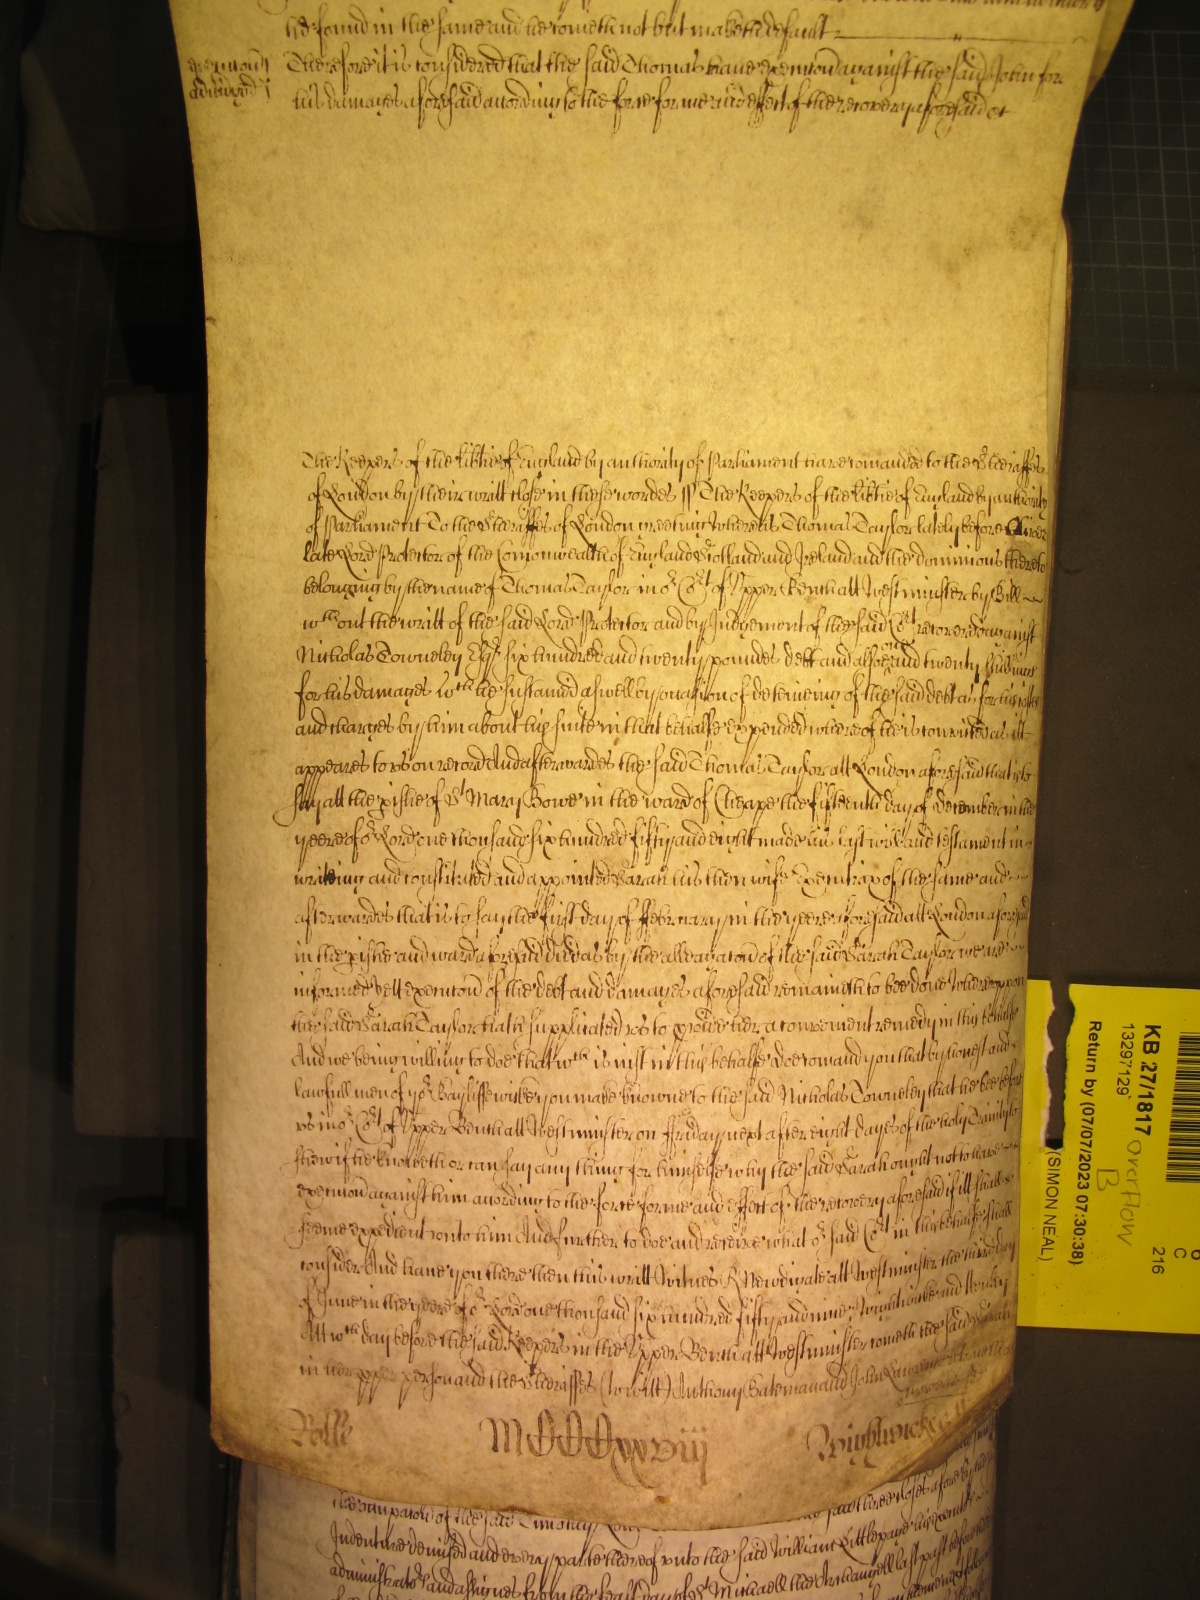 be found in the same and he cometh not but maketh default
execucon
adiudged
Therefore it is considered that the said Thomas have execucon against the said John for
his damages aforesaid according to the force forme and effect of the recovery aforesaid &c
The Keepers of the libtie of England by authority of Parliament have comanded to the Sheriffes
of London by their writt close in these wordes ss The Keepers of the libtie of England by authority
of Parliament To the Sheriffes of London greeting Whereas Thomas Taylor lately before Oliver
late Lord Protector of the Comonwealth of England Scotland and Ireland and the dominions thereto
belonging by the name of Thomas Taylor in or Cort of Upper Bench att Westminster by Bill
wthout the writt of the said Lord Protector and by Judgement of the said Cort recovered against
Nicholas Towneley Esqr six hundred and twenty poundes debt and alsoe one and twenty shillings
for his damages wch he susteined aswell by occasion of deteineing of the said debt as for his costes
and charges by him about his suite in that behalfe expended whereof he is convicted as itt
appeares to us on record And afterwardes the said Thomas Taylor att London aforesaid that is to
say att the pishe of St Mary Bowe in the ward of Cheape the fifteenth day of December in the
yeere of or Lord one thousand six hundred fifty and eight made his last will and testament in
writeing and constituted and appointed Sarah his then wife Executrix of the same and
afterwardes that is to say the first day of ffebruary in the yeere aforesaid att London aforesaid
in the pishe and ward aforesaid died as by the allegacon of the said Sarah Taylor we are
informed Yett execucon of the debt and damages aforesaid remaineth to bee done Whereuppon
the said Sarah Taylor hath supplicated us to provide her a convenient remedy in this behalfe
And we being willing to doe that wch is just in this behalfe doe comand you that by honest and
lawfull men of yor Bayliffewicke you make knowne to the said Nicholas Towneley that he bee before
us in or Cort of Upper Bench att Westminster on ffriday next after eight dayes of the holy Trinity to
shew if he knoweth or can say any thing for himselfe why the said Sarah ought not to have
execucon against him according to the force forme and effect of the recovery aforesaid if itt shall
seeme expedient unto him And further to doe and receive what or said Cort in this behalfe shall
consider And have you there then this writt Witnes R Newdigate att Westminster the third day
of June in the yeere of or Lord one thousand six hundred fifty and nine Wightwicke and Henley
Att wch day before the said Keepers in the Upper Bench att Westminster cometh the said Sarah
in her pper person and the Sheriffes (to witt) Anthony Bateman and John Lawrence
Rolle
MCCCxxviij
Wightwicke
the said three closes afore by the
Indenture demised and every parte thereof unto the said William Littlepage his executors
administrators and assignes from the feast day of St Michaell the Archangell last past before the
KB 27/1817
13297129
Return by (07/07/2023 07:30:38)
(SIMON NEAL)
Overflow
B
C
216